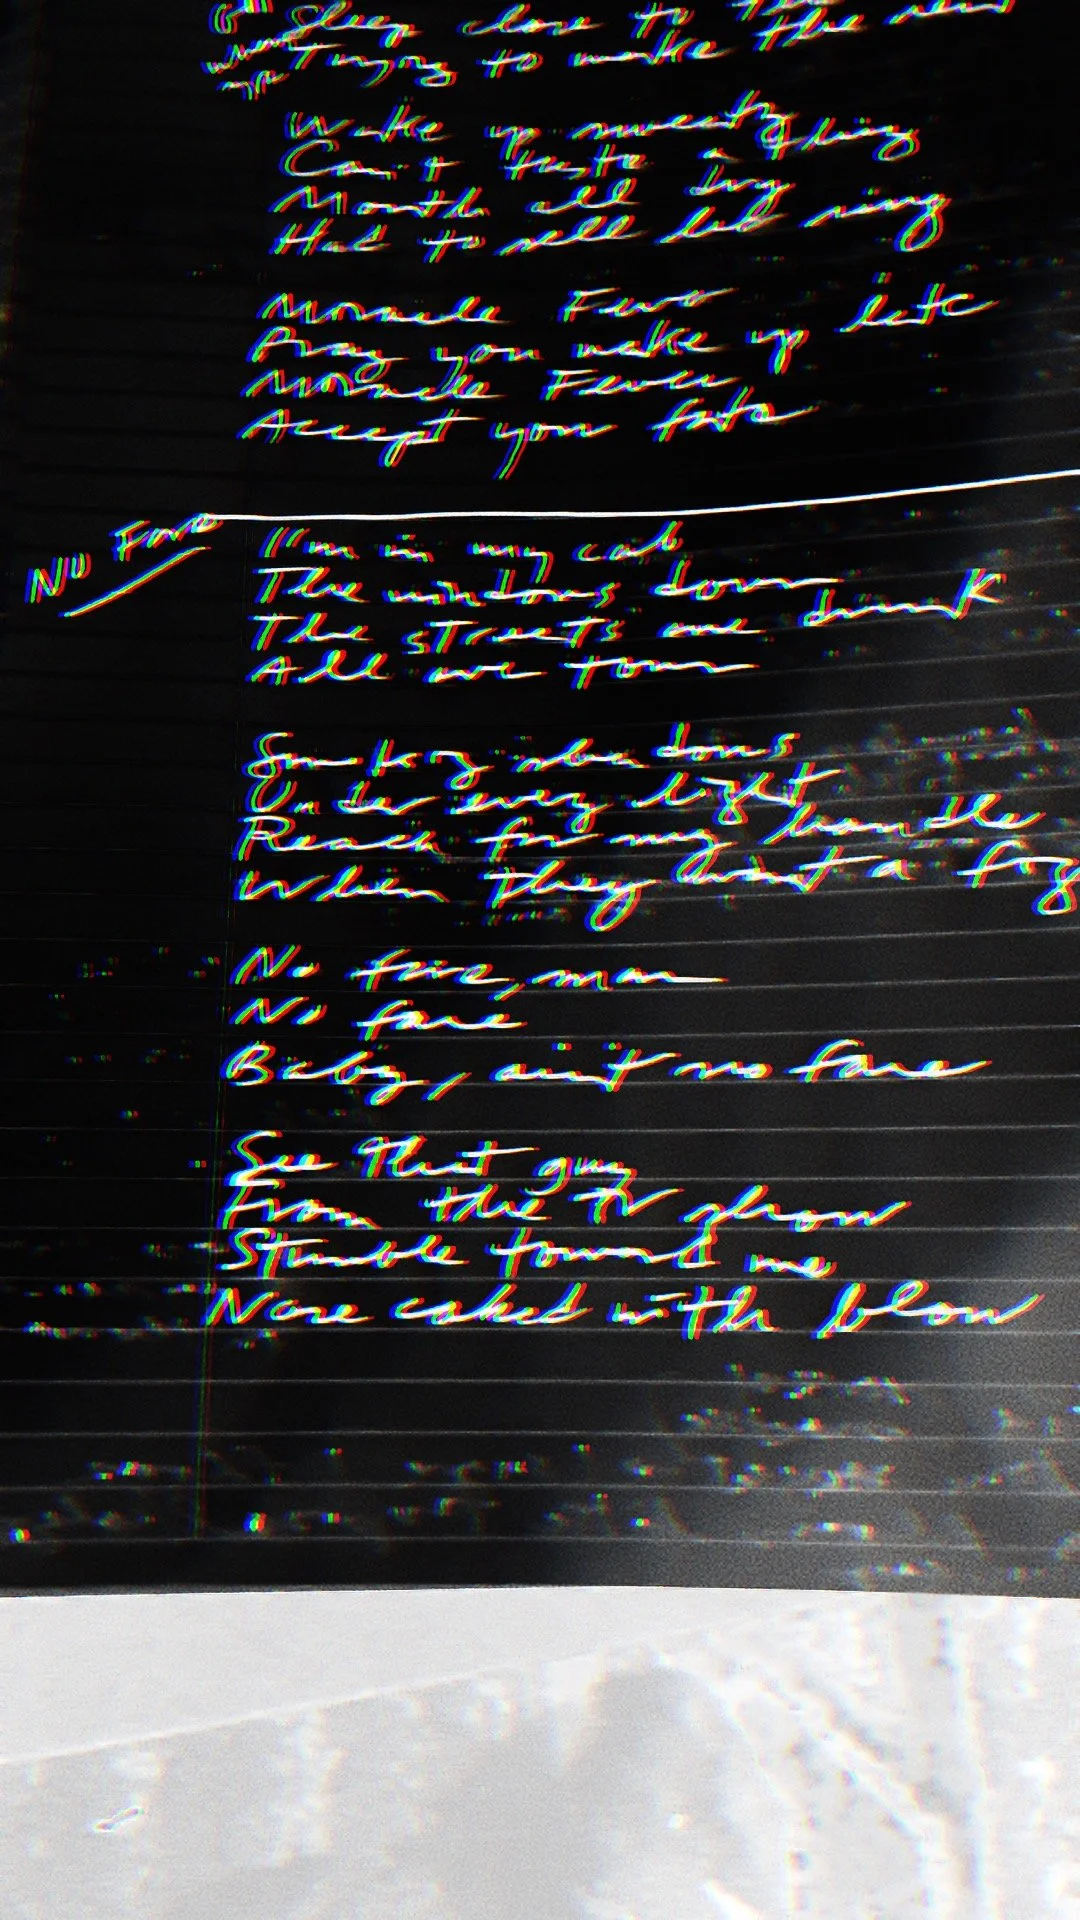 Sleep close to the
Trying to make the
Wake up sweety thing
Can't taste a thing
Mouth all dry
Had to sell dad ring
Miracle Fever
Pray you wake up late
Miracle Fever
Accept you fate
No Fare
I'm in my cab
The windows down
The streets are drunk
All are torn
Smokey shadows
Under every light
Reach for my handle
When they want a
No fare, man
No fare
Baby, ain't no fare
See that guy
From the TV show
Stumble toward me
Nose caked with blow